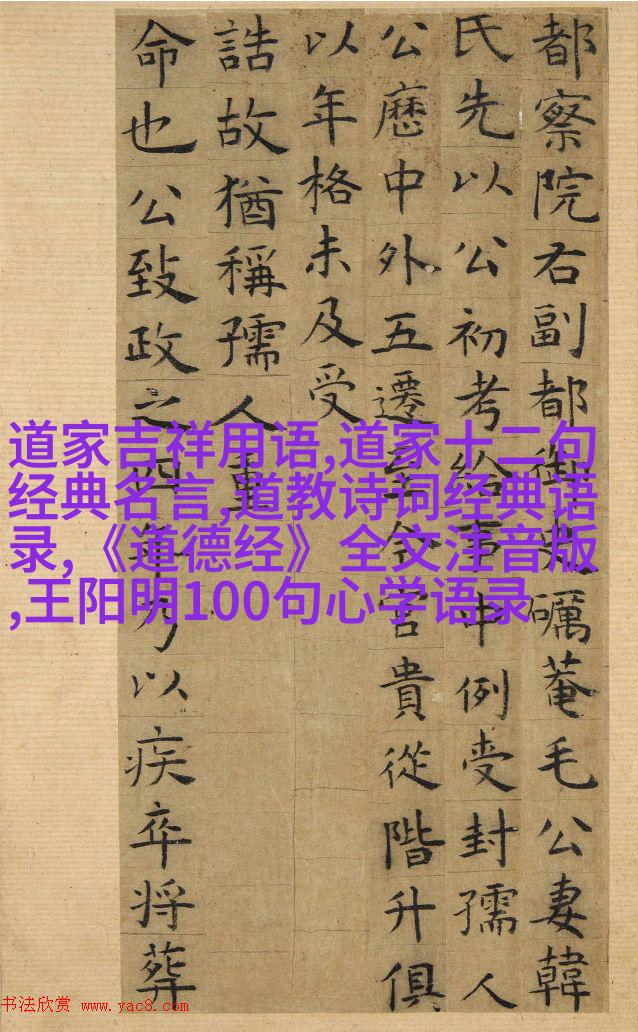 都察院右副都御史礪菴毛公妻韓
氏先以公初考給事中例受封孺人
公歷中外五遷至今官貴從階升俱
以年格未及受
誥故猶稱孺人重
命也公致政之四年乃以疾卒将葬
道家吉祥用语,道家十二句
经典名言,道教诗词经典语
录,《道德经》全文注音版
,王阳明100句心学语录
书法欣赏 www.yac8.com